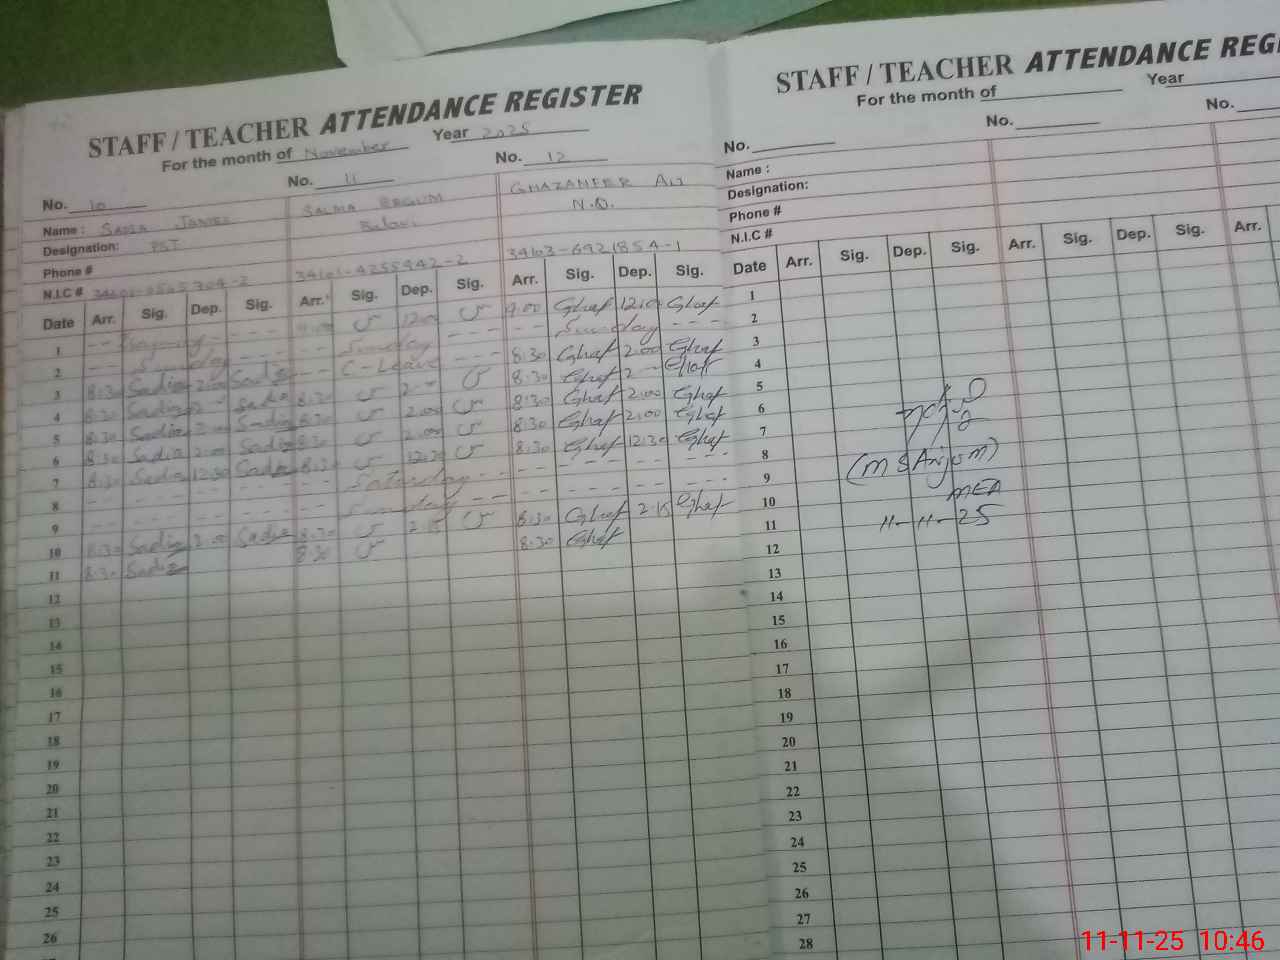 STAFF / TEACHER ATTENDANCE REGISTER
For the month of November Year 2025
No. 10 No. 11 No. 12
Name : SADIA SALMA BEGUM GHAZANFER ALI
Designation: PST N.Q.
Phone #
N.I.C # 34101-4255942-2 34103-6921854-1
Date Arr. Sig. Dep. Sig. Arr. Sig. Dep. Sig. Arr. Sig. Dep. Sig.
1 9.00 Ghaf Ghaf
2 Sunday Sunday Sunday
3 8:30 Sadia C-Leave 8:30 Ghaf 2.00 Ghaf
4 8:30 Sadia Sadia 8:30 8:30 Ghaf 2 Ghaf
5 8:30 Sadia 2.00 Sadia 8:30 2.00 8:30 Ghaf 2.00 Ghaf
6 8:30 Sadia 2.00 Sadia 8:30 2.00 8:30 Ghaf 2.00 Ghaf
7 8:30 Sadia 12:30 Sadia 8:30 12:30 8:30 Ghaf 12:30 Ghaf
8 Saturday
9 Sunday
10 8:30 Sadia 2.00 Sadia 8:30 2.15 8:30 Ghaf 2.15 Ghaf
11 8:30 Sadia 8:30 8:30 Ghaf
12
13
14
15
16
17
18
19
20
21
22
23
24
25
26
STAFF / TEACHER ATTENDANCE REGI
For the month of Year
No. No. No.
Name :
Designation:
Phone #
N.I.C #
Date Arr. Sig. Dep. Sig. Arr. Sig. Dep. Sig. Arr.
1
2
3
4
5
6
7
8 (M S Anjum)
9
10 MEA
11 11-11-25
12
13
14
15
16
17
18
19
20
21
22
23
24
25
26
27
28
11-11-25 10:46